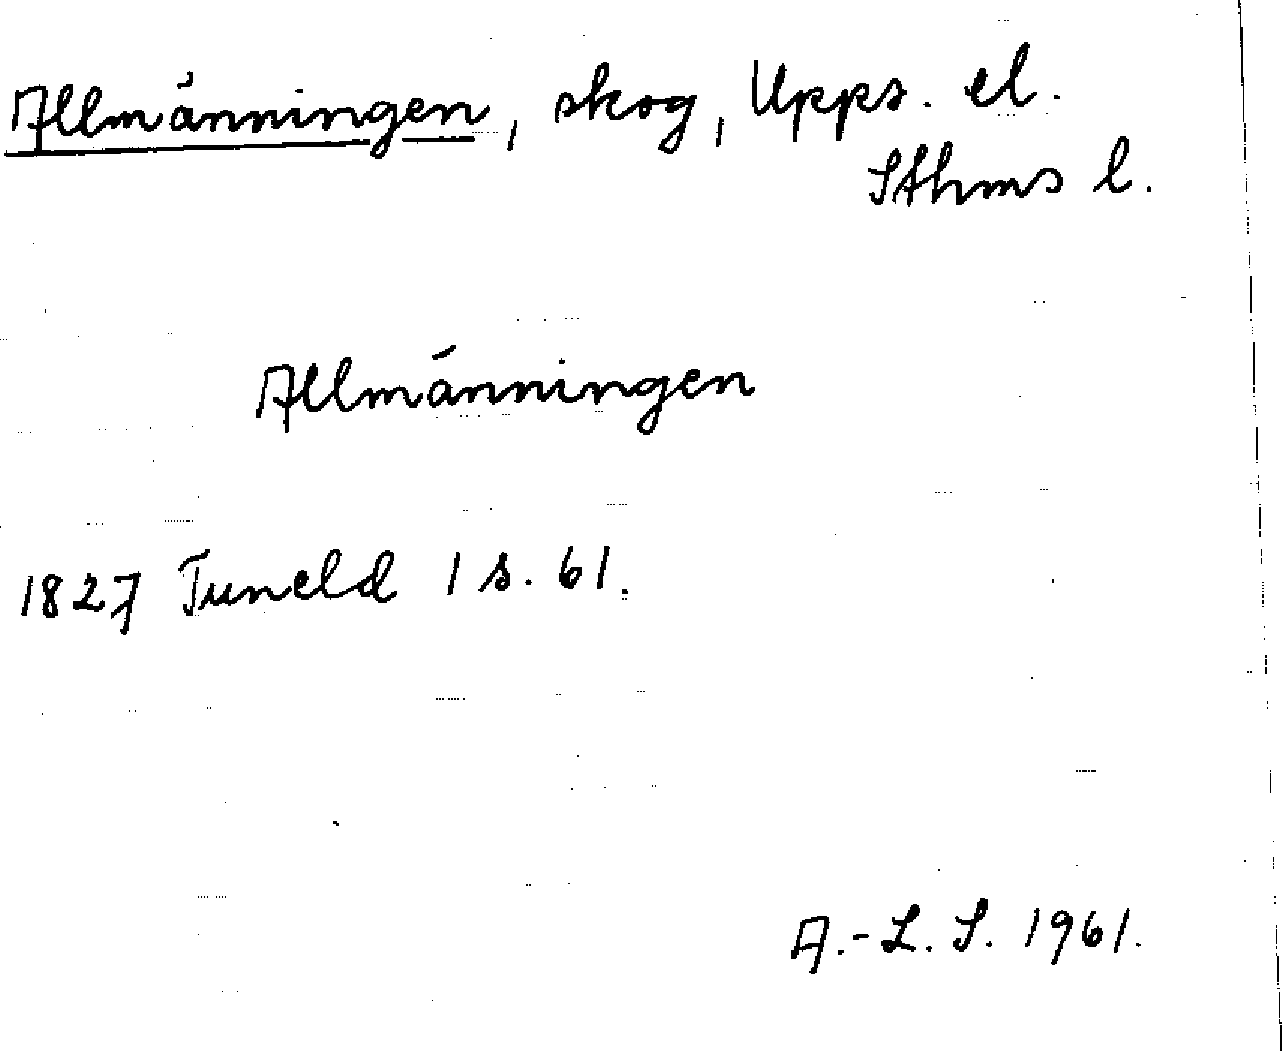 Allmänningen, skog, Upps. el.
Sthms l.
Allmänningen
1827 Tuneld 1 s. 61.
A.-L. S. 1961.